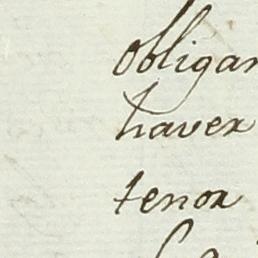 obligan
haver
tenor